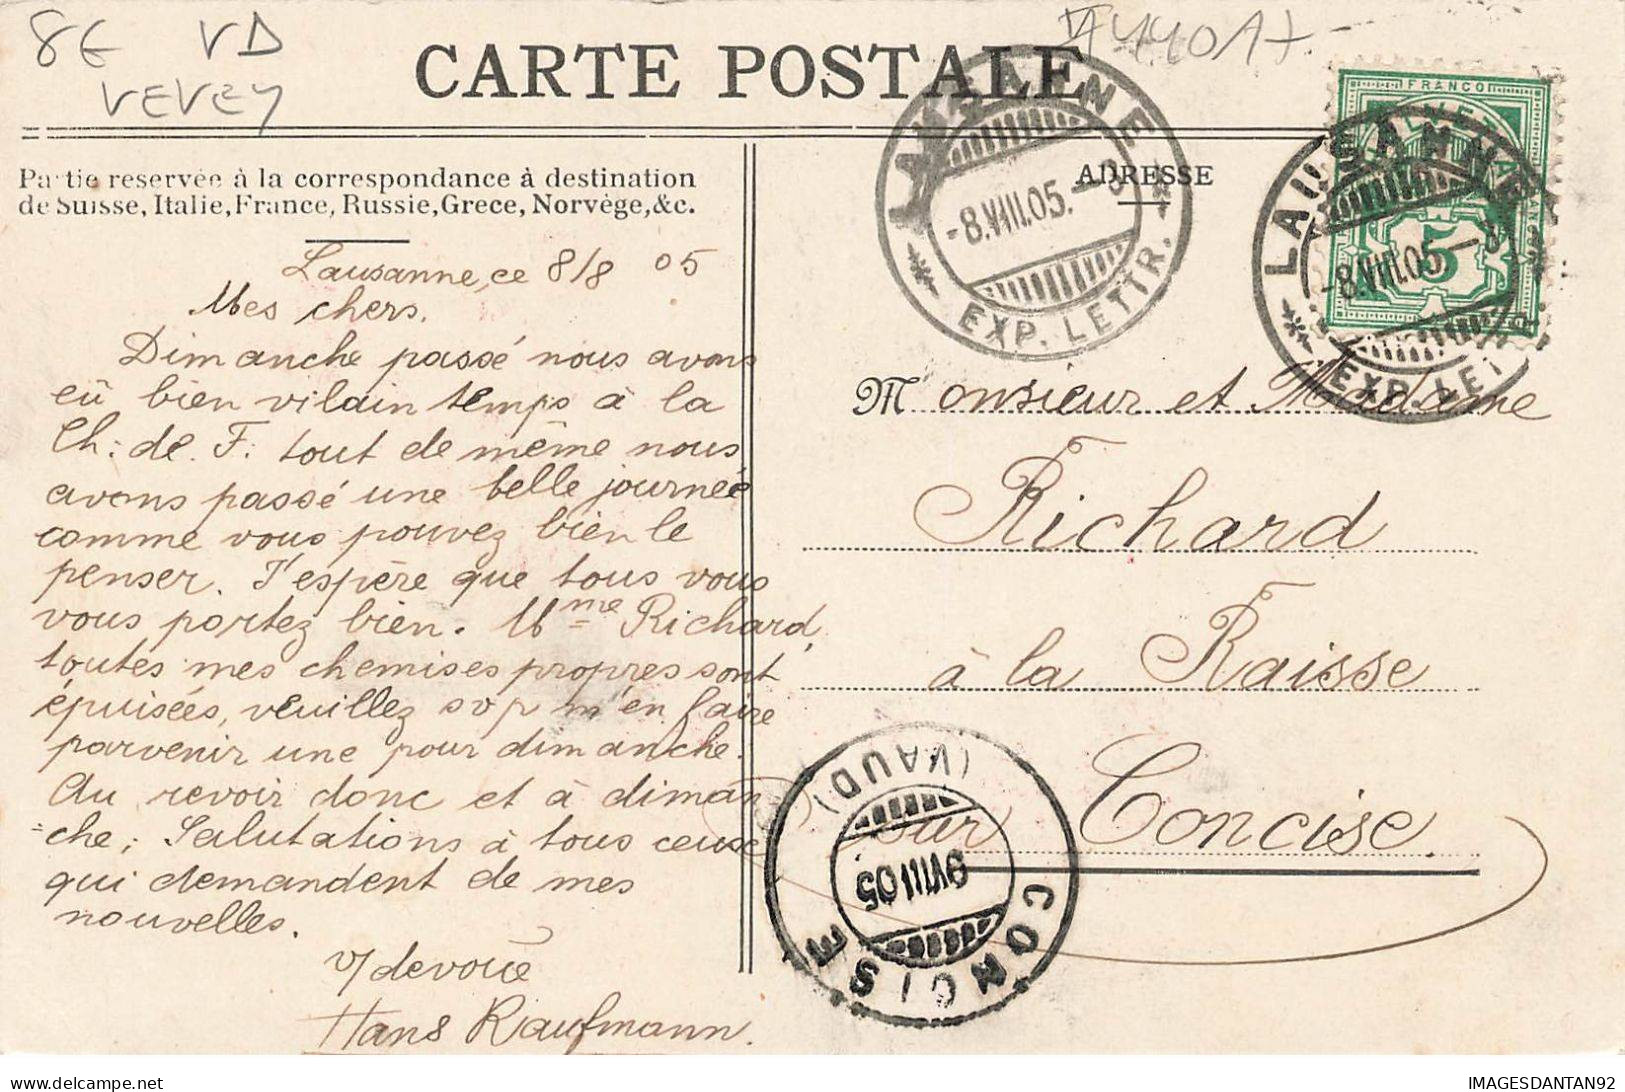 8€ VD
VEVEY
CARTE POSTALE
Partie reservée à la correspondance à destination
de Suisse, Italie, France, Russie, Grece, Norvège, &c.
ADRESSE
LAUSANNE
-8.VIII.05.-8
EXP. LETTR.
FRANCO
5
LAUSANNE
-8.VIII.05-8
EXP. LET
Lausanne, ce 8/8 05
Mes chers.
Dimanche passé nous avons
eû bien vilain temps à la
Ch: de. F: tout de même nous
avons passé une belle journée
comme vous pouvez bien le
penser. J'espère que tous vous
vous portez bien. Mme Richard,
toutes mes chemises propres sont
épuisées, veuillez svp m'en faire
parvenir une pour dimanche.
Au revoir donc et à diman
=che; Salutations à tous ceux
qui demandent de mes
nouvelles.
v/ devoué
Hans Kaufmann.
Monsieur et Madame
Richard
à la Raisse
sur Concise.
CONCISE
(VAUD)
9.VIII.05
delcampe.net
IMAGESDANTAN92